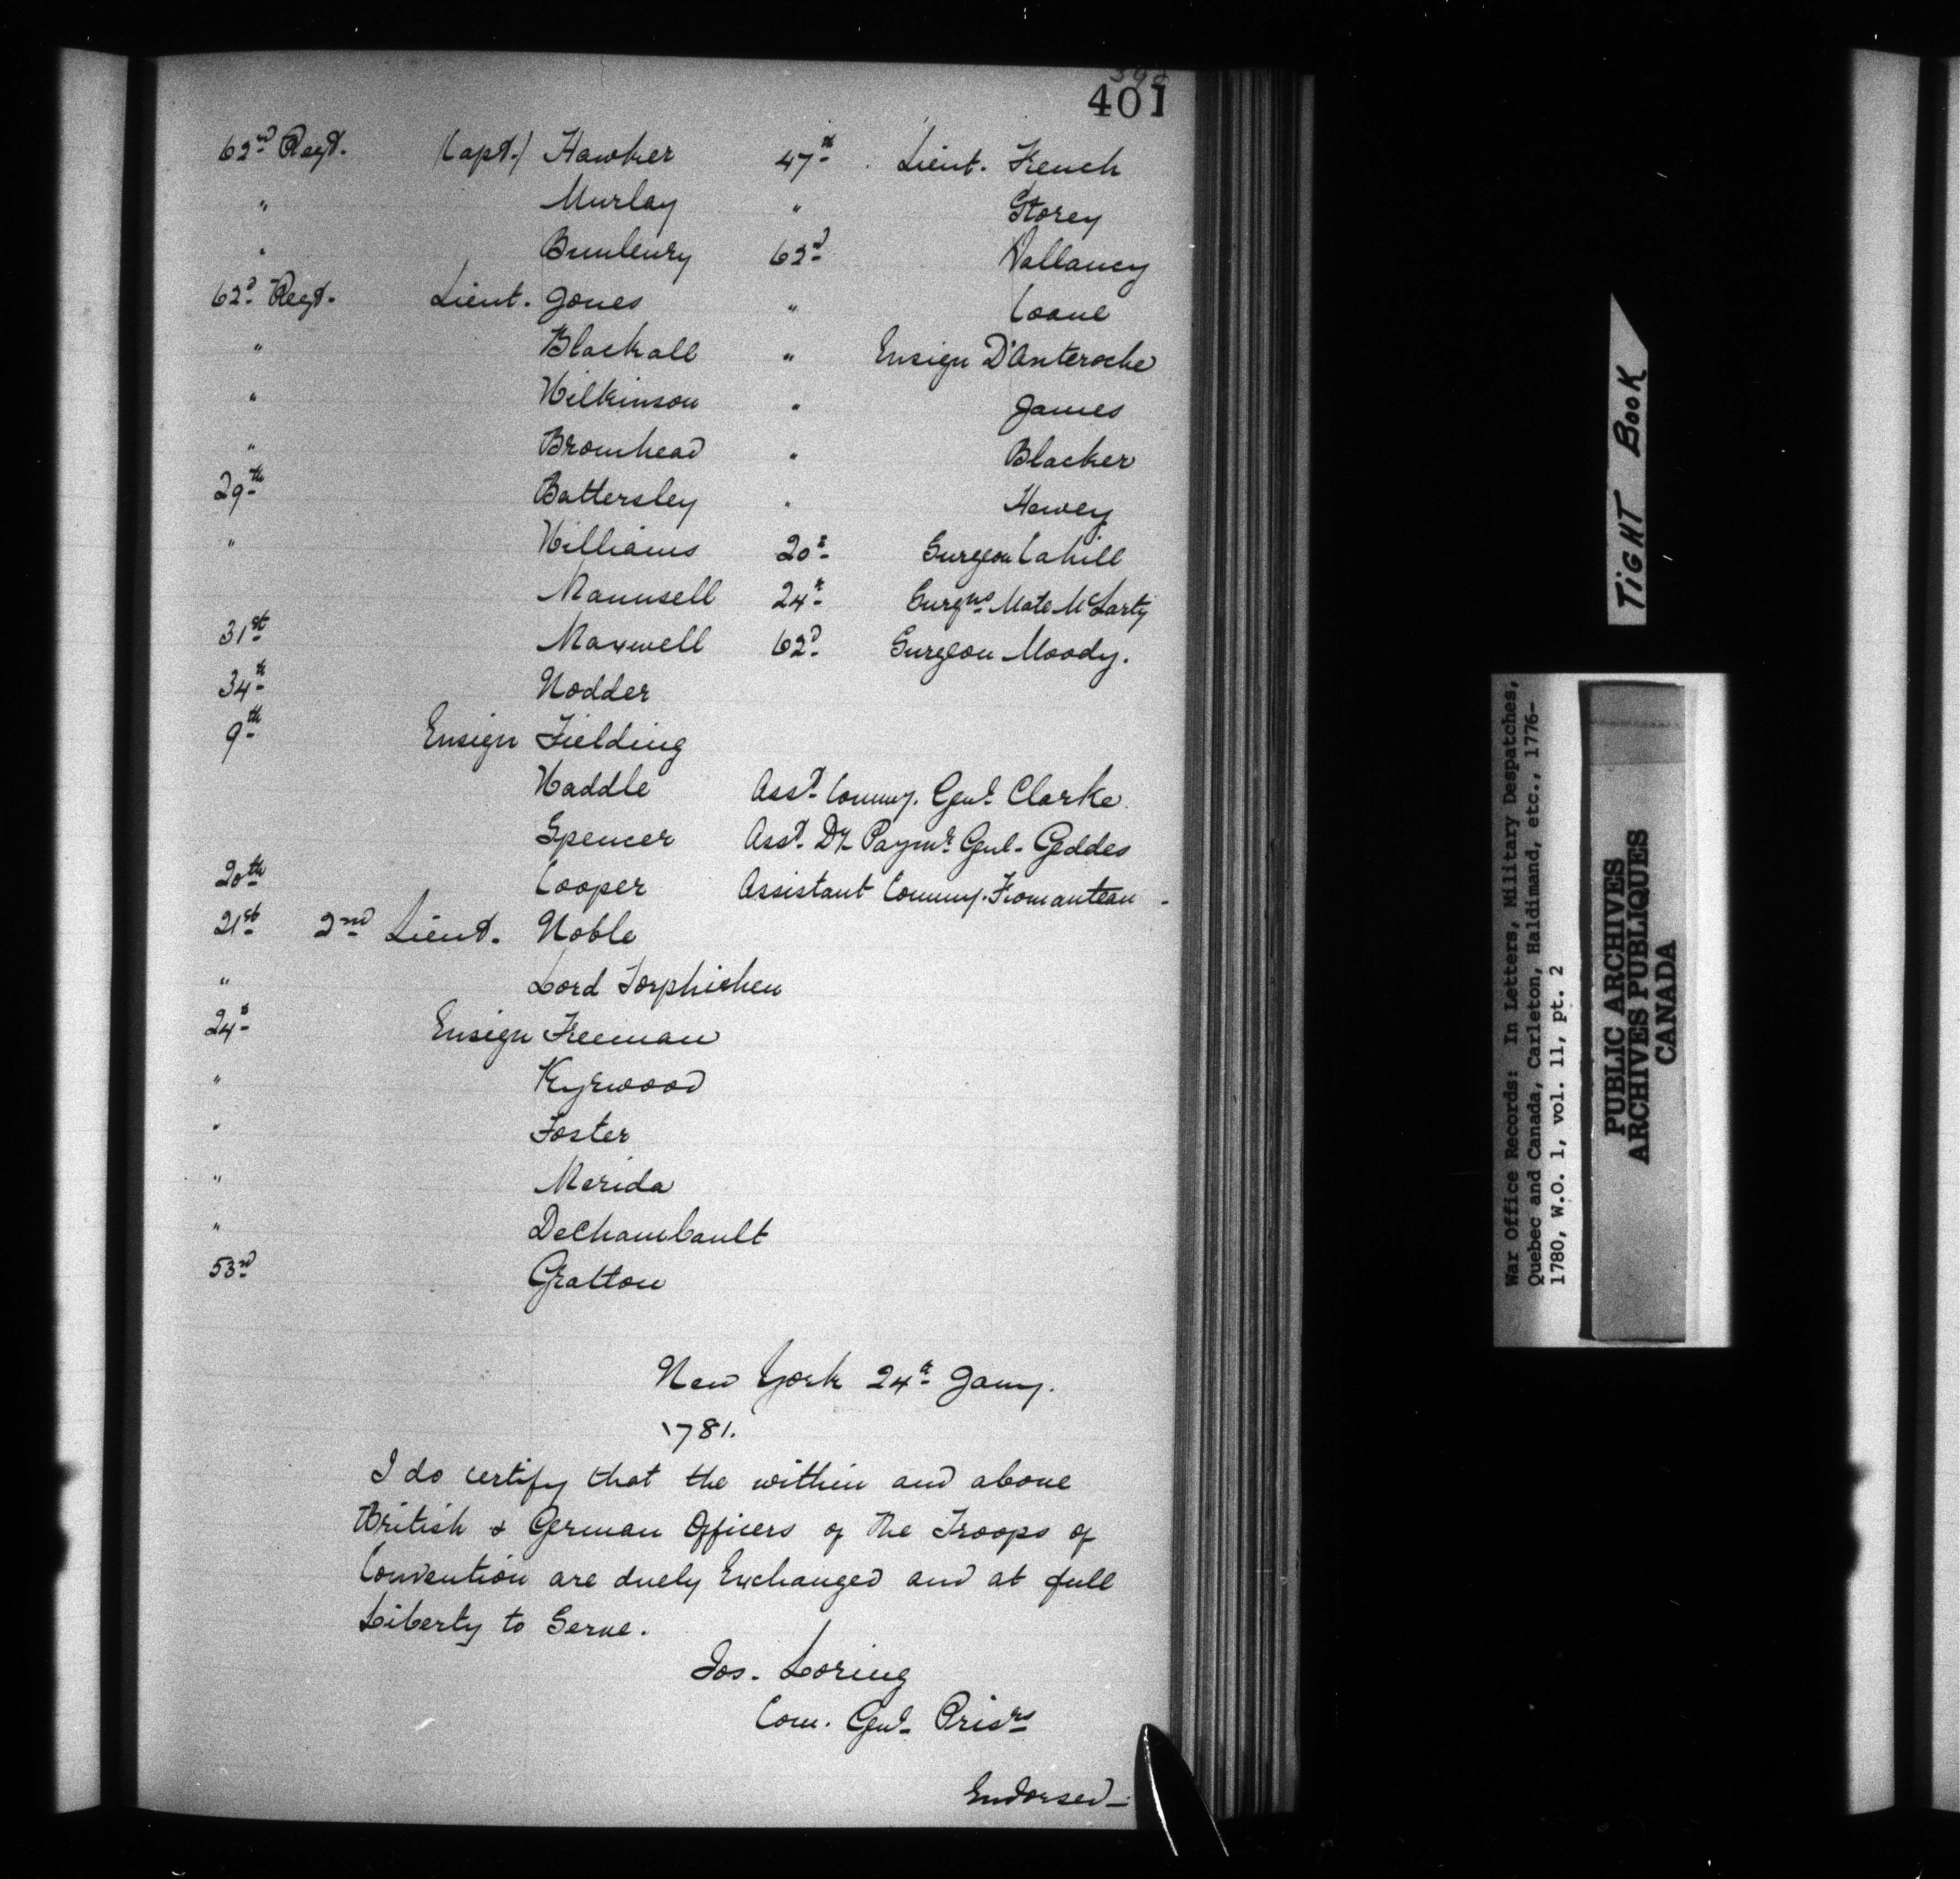 401
62nd Regt. (Capt.) Hawker 47th Lieut. French
" Murlay " Storey
" Bunbury 62d Vallancy
62d Regt. Lieut. Jones " Coane
" Blackall " Ensign D'Anteroche
" Wilkinson " James
" Bromhead " Blacker
29th Battersley " Harvey
" Williams 20th Surgeon Cahill
Maunsell 24th Surgns Mate McLarty
31st Maxwell 62d Surgeon Moody.
34th Nodder
9th Ensign Fielding
Waddle Asst. Commy. Genl. Clarke.
Spencer Asst. Dy. Paymr. Genl. Geddes
20th Cooper Assistant Commy. Fromanteau -
21st 2nd Lieut. Noble
" Lord Torphichen
24th Ensign Freeman
" Kyrwood
" Foster
" Merida
" DeChambault
53rd Gratton
New York 24th Jany.
1781.
I do certify that the within and above
British & German Officers of The Troops of
Convention are duely Exchanged and at full
Liberty to Serve.
Jos. Loring
Com. Genl. Prisrs
Endorsed_
TiGHT BooK
War Office Records: In Letters, Military Despatches,
Quebec and Canada, Carleton, Haldimand, etc., 1776-
1780, W.O. 1, vol. 11, pt. 2
PUBLIC ARCHIVES
ARCHIVES PUBLIQUES
CANADA